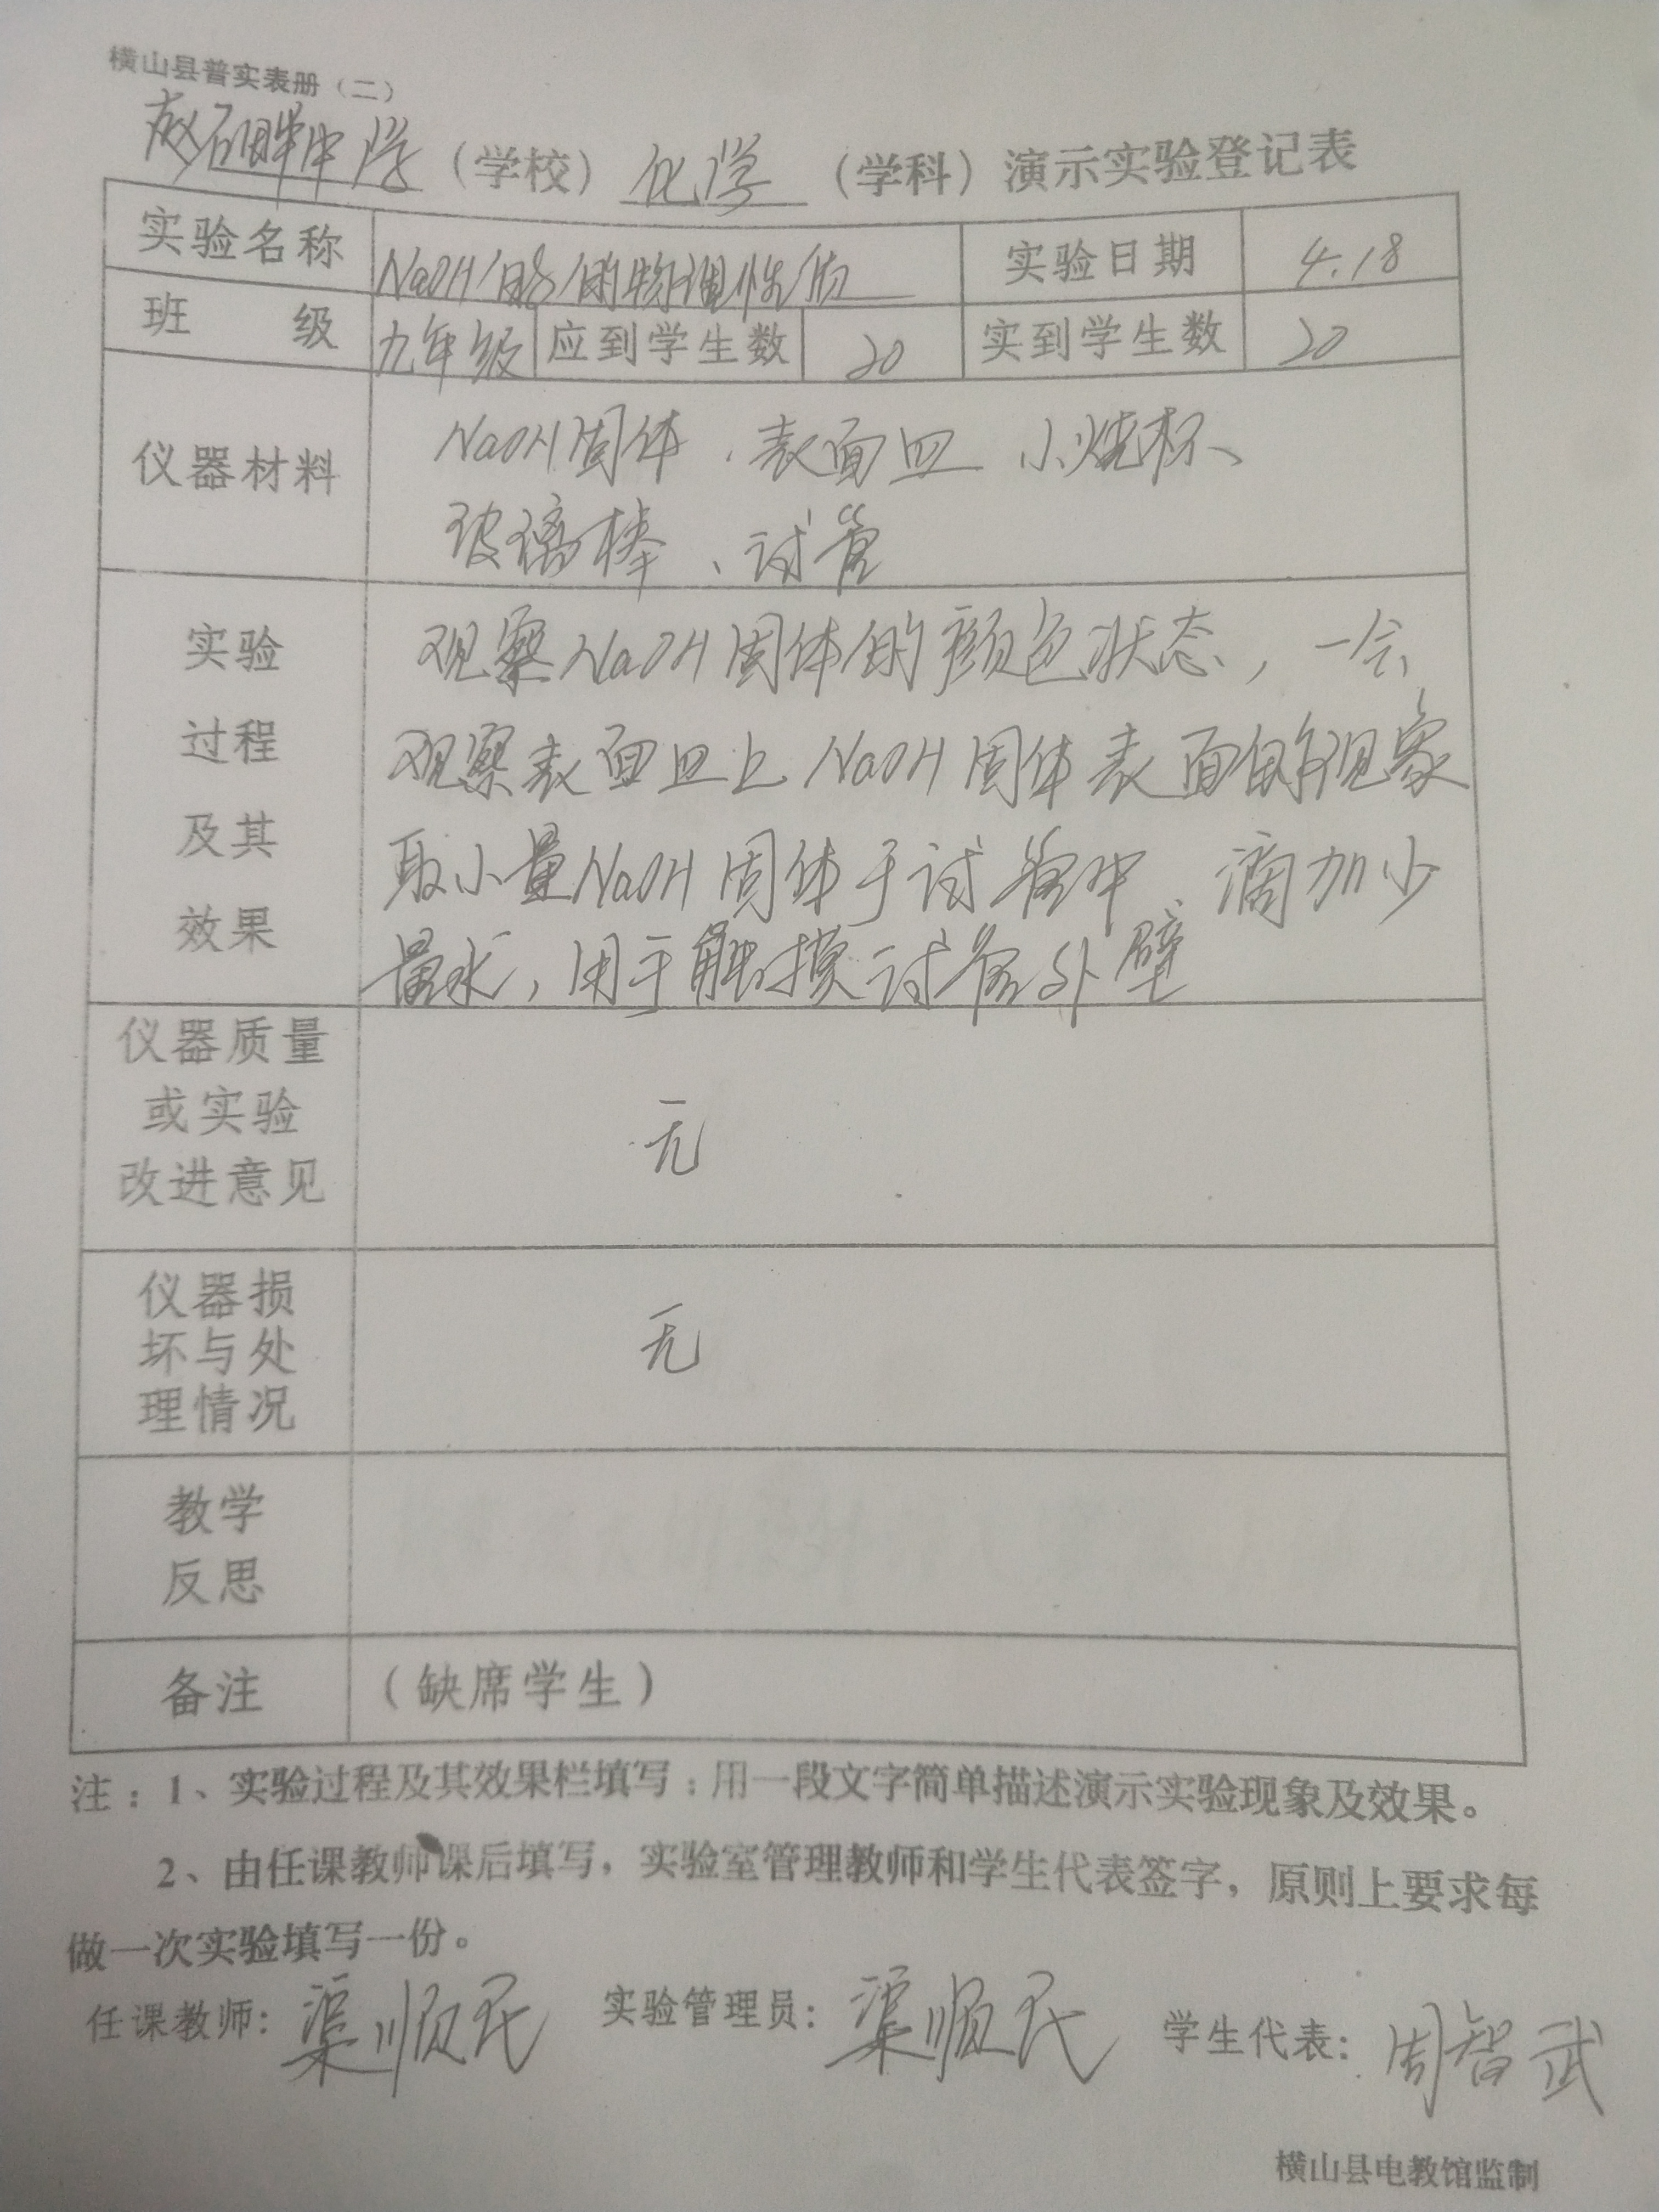 横山县普实表册（二）
赵石畔中学（学校）化学（学科）演示实验登记表
实验名称 NaOH 的物理性质 实验日期 4.18
班 级 九年级 应到学生数 20 实到学生数 20
仪器材料 NaOH固体、表面皿 小烧杯、
玻璃棒、试管
实验 观察NaOH固体的颜色状态，一会
过程 观察表面皿上NaOH固体表面的现象
及其 取小量NaOH固体于试管中、滴加少
效果 量水，用手触摸试管外壁
仪器质量
或实验 无
改进意见
仪器损
坏与处 无
理情况
教学
反思
备注 （缺席学生）
注：1、实验过程及其效果栏填写：用一段文字简单描述演示实验现象及效果。
2、由任课教师课后填写，实验室管理教师和学生代表签字，原则上要求每
做一次实验填写一份。
任课教师：渠顺民 实验管理员：渠顺民 学生代表：周智武
横山县电教馆监制